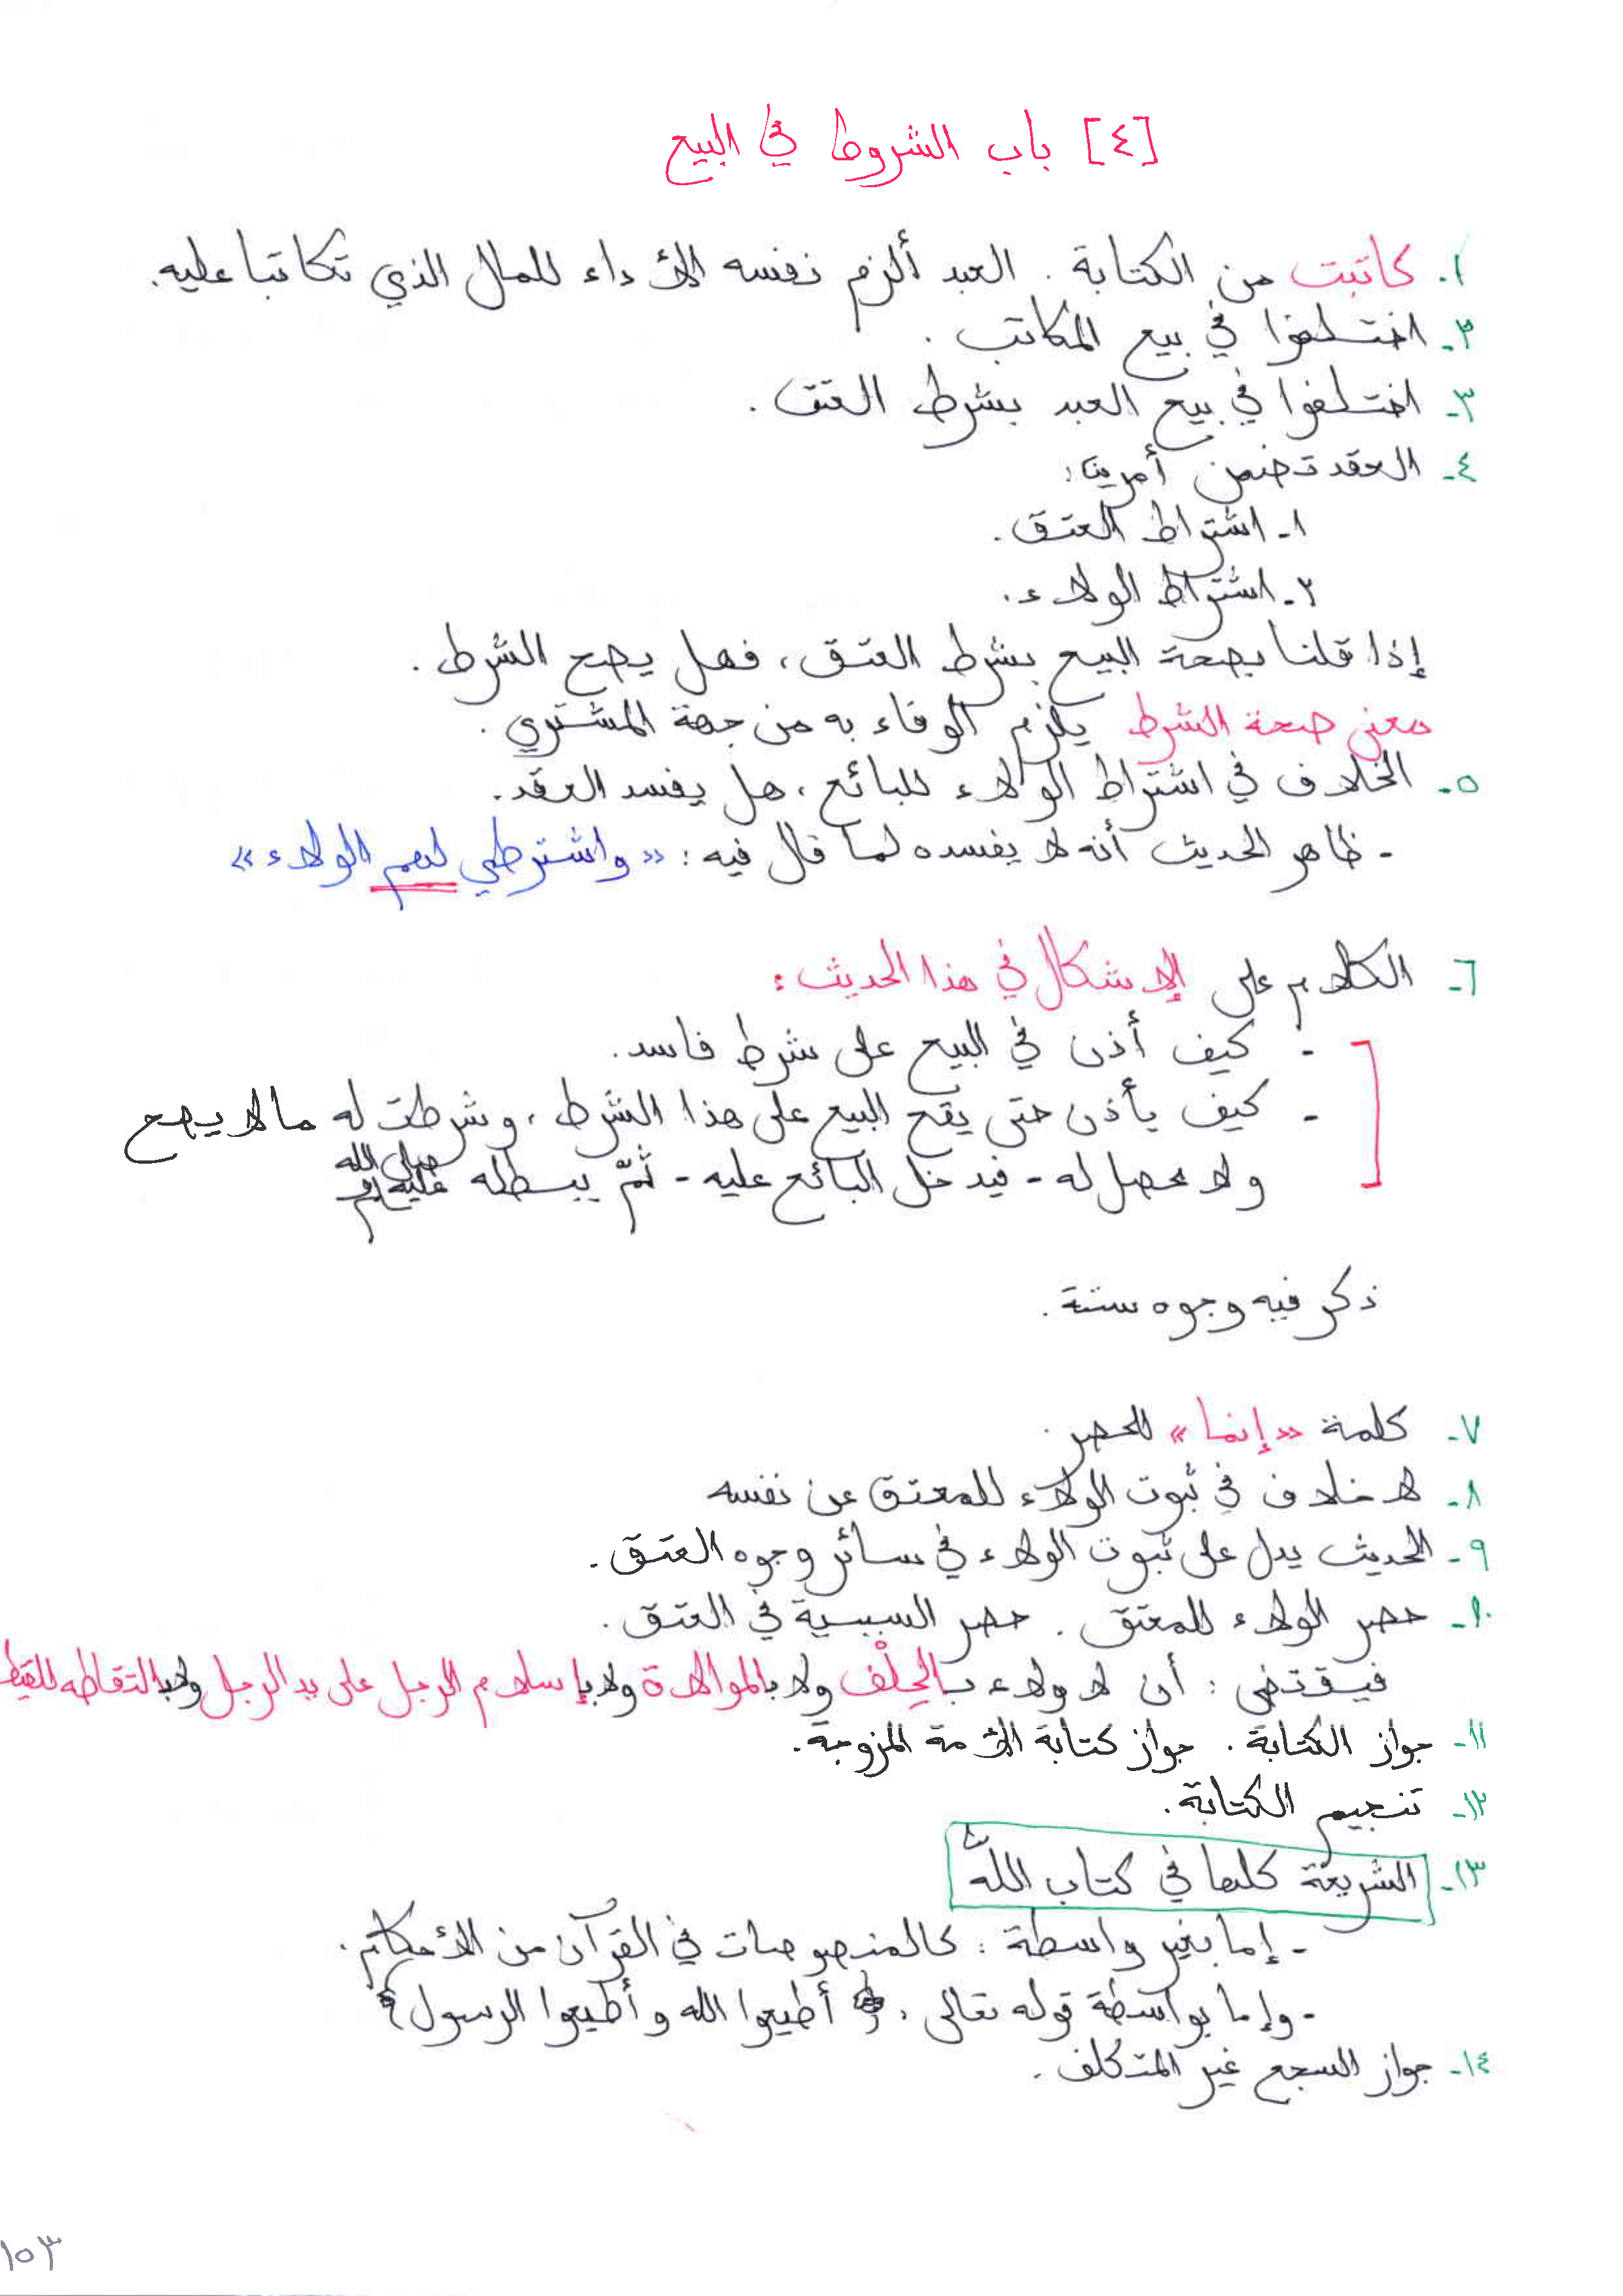 [٤] باب الشروط في البيع
١. كاتبت من الكتابة . العبد ألزم نفسه الأداء للمال الذي تكاتبا عليه.
٢- اختلفوا في بيع المكاتب .
٣- اختلفوا في بيع العبد بشرط العتق .
٤- العقد تضمن أمرين:
١- اشتراط العتق.
٢- اشتراط الولاء.
إذا قلنا بصحة البيع بشرط العتق، فهل يصح الشرط .
معنى صحة الشرط يلزم الوفاء به من جهة المشتري .
٥- الخلاف في اشتراط الولاء للبائع، هل يفسد العقد.
- ظاهر الحديث أنه لا يفسده لما قال فيه: «واشترطي لهم الولاء»
٦- الكلام على الإشكال في هذا الحديث:
- كيف أذن في البيع على شرط فاسد.
- كيف يأذن حتى يقع البيع على هذا الشرط، وشرطت له ما لا يصح
ولا يحصل له - فيدخل البائع عليه - ثمّ يبطله صلى الله عليه وسلم
ذكر فيه وجوه ستة.
٧- كلمة «إنما» للحصر.
٨- لا خلاف في ثبوت الولاء للمعتق عن نفسه
٩- الحديث يدل على ثبوت الولاء في سائر وجوه العتق.
١٠- حصر الولاء للمعتق . حصر السببية في العتق.
فيقتضي : أن لا ولاء بالحِلْف ولا بالموالاة ولا بإسلام الرجل على يد الرجل ولا بالتقاطه للقيط
١١- جواز الكتابة . جواز كتابة الأمة المزوجة.
١٢- تنجيم الكتابة.
١٣- الشريعة كلها في كتاب اللهُ
- إما بغير واسطة : كالمنصوصات في القرآن من الأحكام.
- وإما بواسطة قوله تعالى : ﴿ أطيعوا الله وأطيعوا الرسول ﴾
١٤- جواز السجع غير المتكلف .
١٥٣